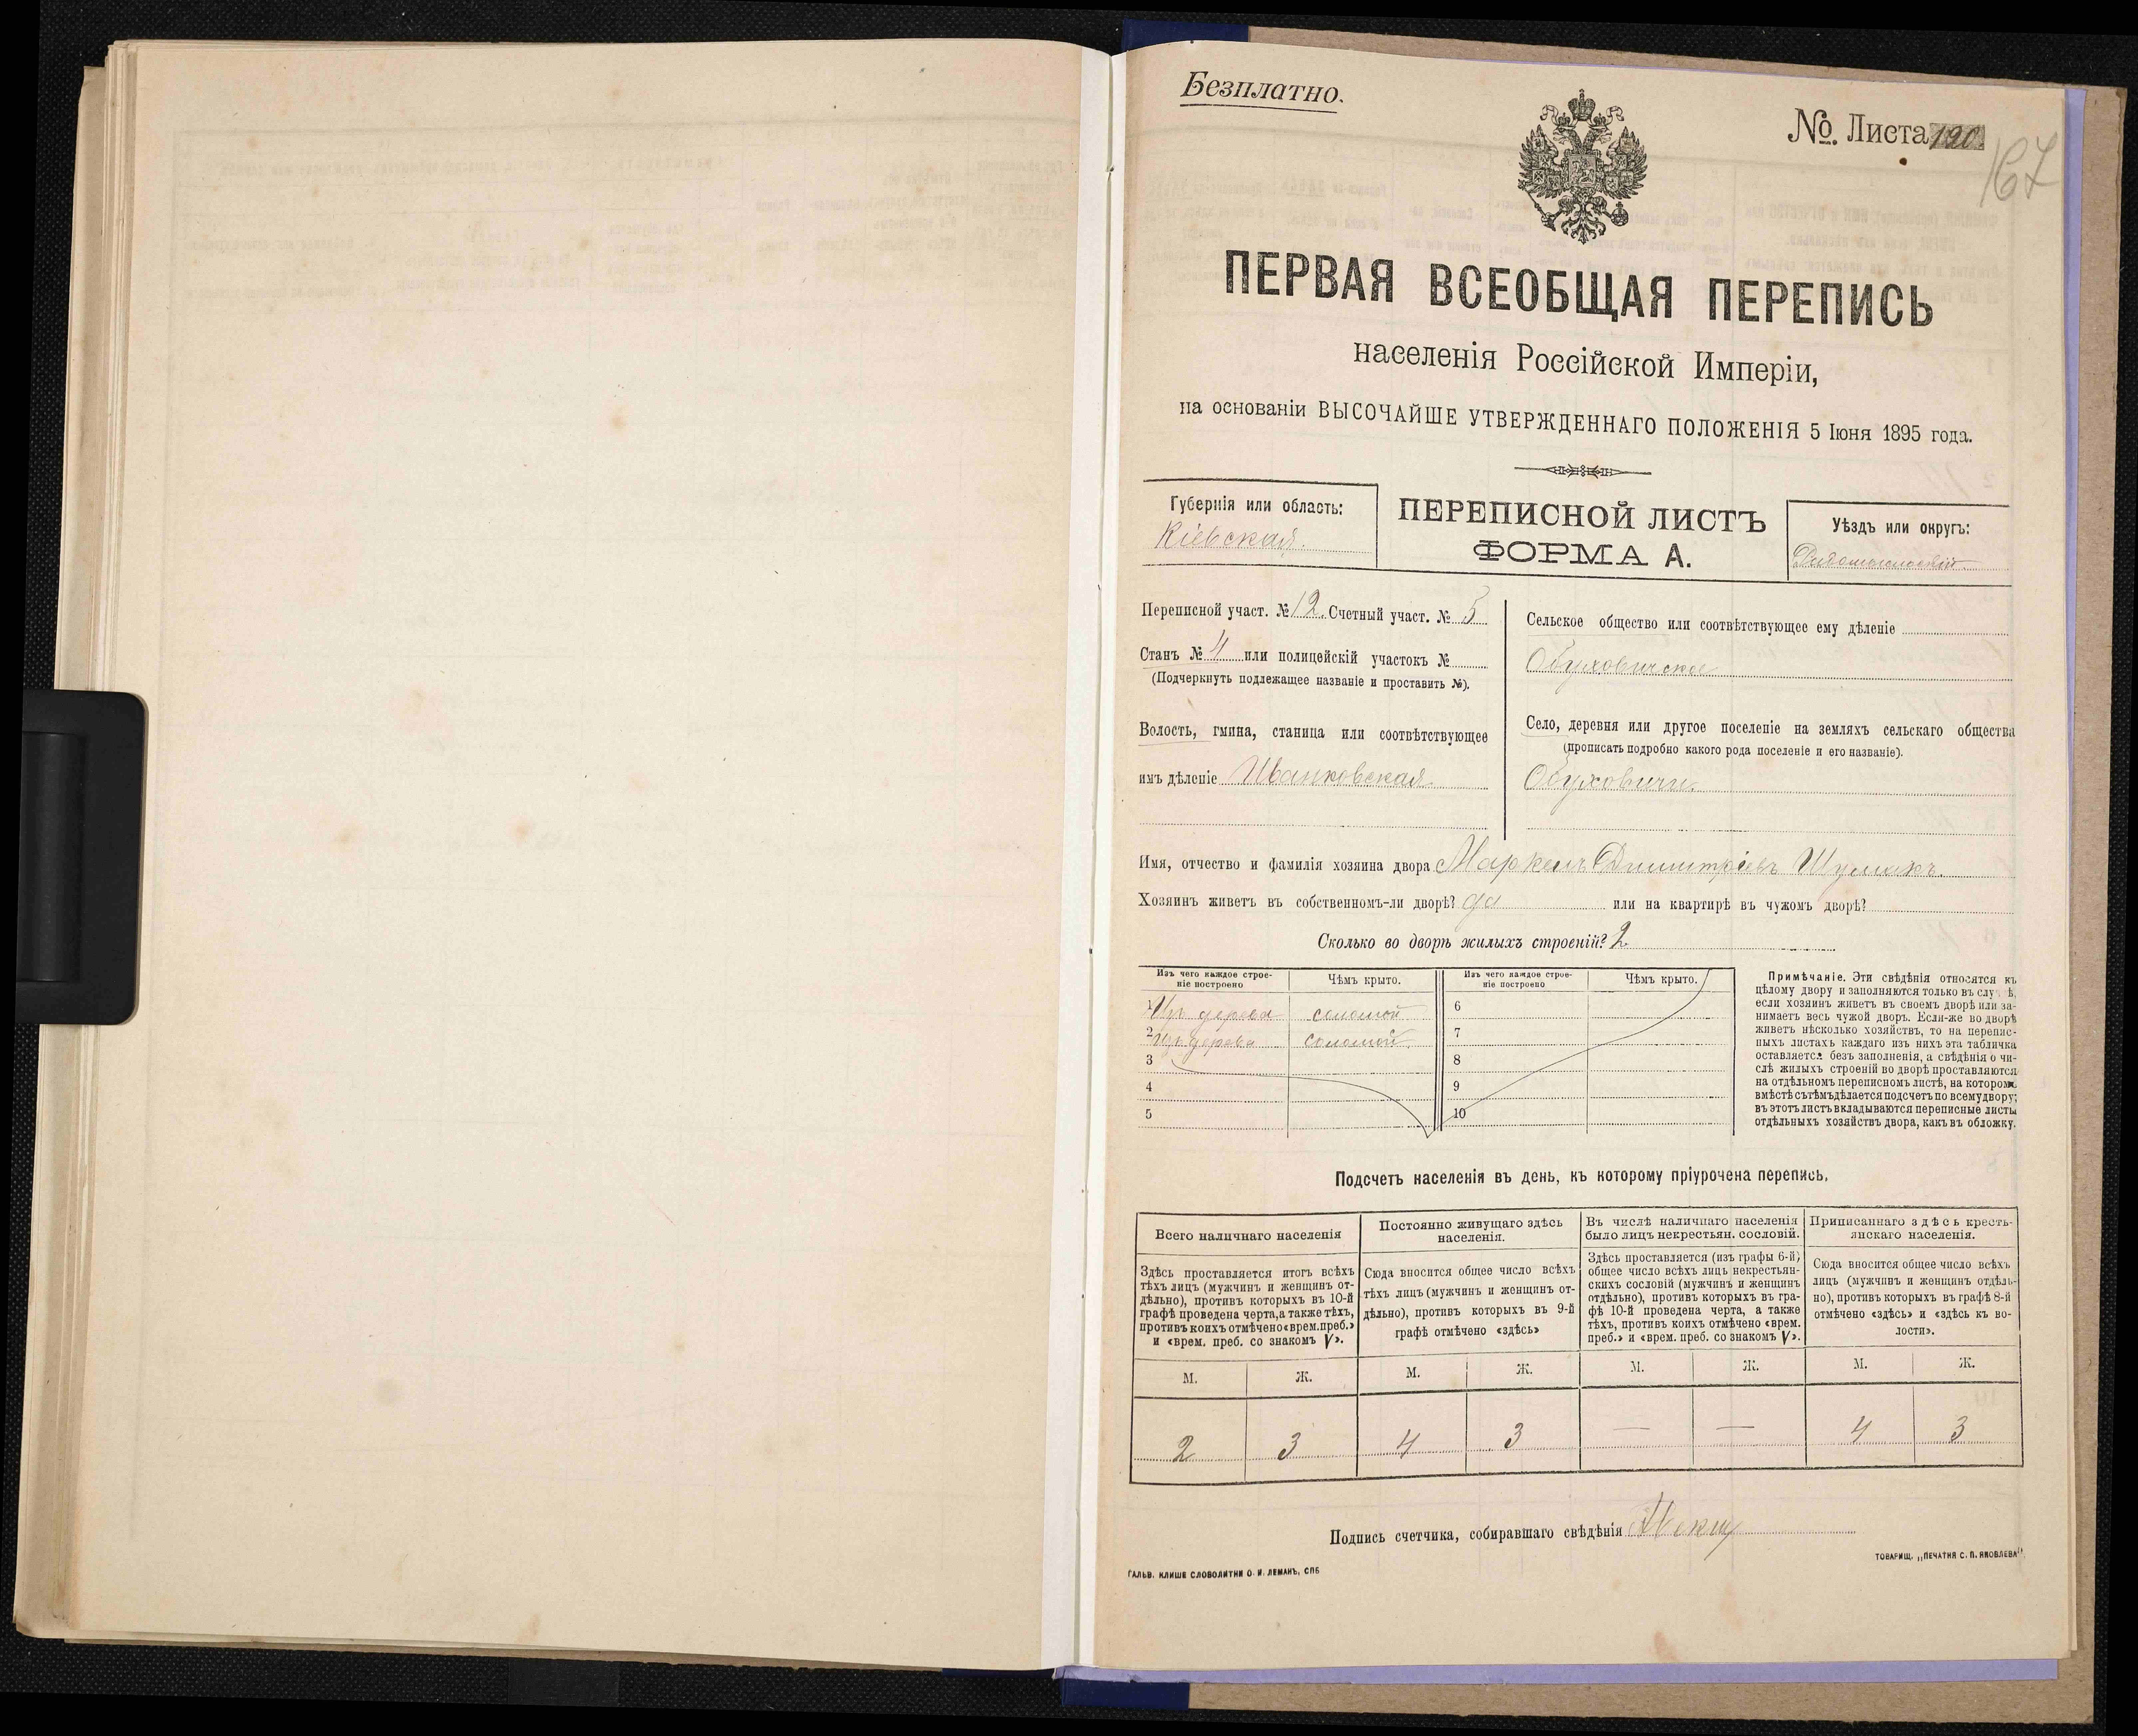 Безплатно.
№ Листа 190.
167
ПЕРВАЯ ВСЕОБЩАЯ ПЕРЕПИСЬ
населенія Россійской Имперіи,
на основаніи ВЫСОЧАЙШЕ УТВЕРЖДЕННАГО ПОЛОЖЕНІЯ 5 Іюня 1895 года.
Губернія или область:
Кіевская.
ПЕРЕПИСНОЙ ЛИСТЪ
ФОРМА А.
Уѣздъ или округъ:
Радомысльскій
Переписной участ. № 12. Счетный участ. № 5
Станъ № 4 или полицейскій участокъ №
(Подчеркнуть подлежащее названіе и проставить №).
Волость, гмина, станица или соотвѣтствующее
имъ дѣленіе Иванковская
Сельское общество или соотвѣтствующее ему дѣленіе
Обуховичское
Село, деревня или другое поселеніе на земляхъ сельскаго общества
(прописать подробно какого рода поселеніе и его названіе).
Обуховичи.
Имя, отчество и фамилія хозяина двора Маркелъ Димитріевъ Шумакъ.
Хозяинъ живетъ въ собственномъ-ли дворѣ? да или на квартирѣ въ чужомъ дворѣ?
Сколько во дворѣ жилыхъ строеній? 2
Изъ чего каждое строе-
ніе построено
Чѣмъ крыто.
Изъ чего каждое строе-
ніе построено
Чѣмъ крыто.
1 Изъ дерева соломой 6
2 изъ дерева соломой 7
3 8
4 9
5 10
Примѣчаніе. Эти свѣдѣнія относятся къ
цѣлому двору и заполняются только въ слу ѣ,
если хозяинъ живетъ въ своемъ дворѣ или за-
нимаетъ весь чужой дворъ. Если-же во дворѣ
живетъ нѣсколько хозяйствъ, то на перепис-
ныхъ листахъ каждаго изъ нихъ эта табличка
оставляется безъ заполненія, а свѣдѣнія о чи-
слѣ жилыхъ строеній во дворѣ проставляются
на отдѣльномъ переписномъ листѣ, на которомъ
вмѣстѣ съ тѣмъ дѣлается подсчетъ по всему двору;
въ этотъ листъ вкладываются переписные листы
отдѣльныхъ хозяйствъ двора, какъ въ обложку.
Подсчетъ населенія въ день, къ которому пріурочена перепись.
Всего наличнаго населенія
Здѣсь проставляется итогъ всѣхъ
тѣхъ лицъ (мужчинъ и женщинъ от-
дѣльно), противъ которыхъ въ 10-й
графѣ проведена черта, а также тѣхъ,
противъ коихъ отмѣчено «врем. преб.»
и «врем. преб. со знакомъ V».
Постоянно живущаго здѣсь
населенія.
Сюда вносится общее число всѣхъ
тѣхъ лицъ (мужчинъ и женщинъ от-
дѣльно), противъ которыхъ въ 9-й
графѣ отмѣчено «здѣсь»
Въ числѣ наличнаго населенія
было лицъ некрестьян. сословій.
Здѣсь проставляется (изъ графы 6-й)
общее число всѣхъ лицъ некрестьян-
скихъ сословій (мужчинъ и женщинъ
отдѣльно), противъ которыхъ въ гра-
фѣ 10-й проведена черта, а также
тѣхъ, противъ коихъ отмѣчено «врем.
преб.» и «врем. преб. со знакомъ V».
Приписаннаго здѣсь кресть-
янскаго населенія.
Сюда вносится общее число всѣхъ
лицъ (мужчинъ и женщинъ отдѣль-
но), противъ которыхъ въ графѣ 8-й
отмѣчено «здѣсь» и «здѣсь къ во-
лости».
М. Ж. М. Ж. М. Ж. М. Ж.
2 3 4 3 — — 4 3
Подпись счетчика, собиравшаго свѣдѣнія
ГАЛЬВ. КЛИШЕ СЛОВОЛИТНИ О. И. ЛЕМАНЪ, СПБ
ТОВАРИЩ. „ПЕЧАТНЯ С. П. ЯКОВЛЕВА"